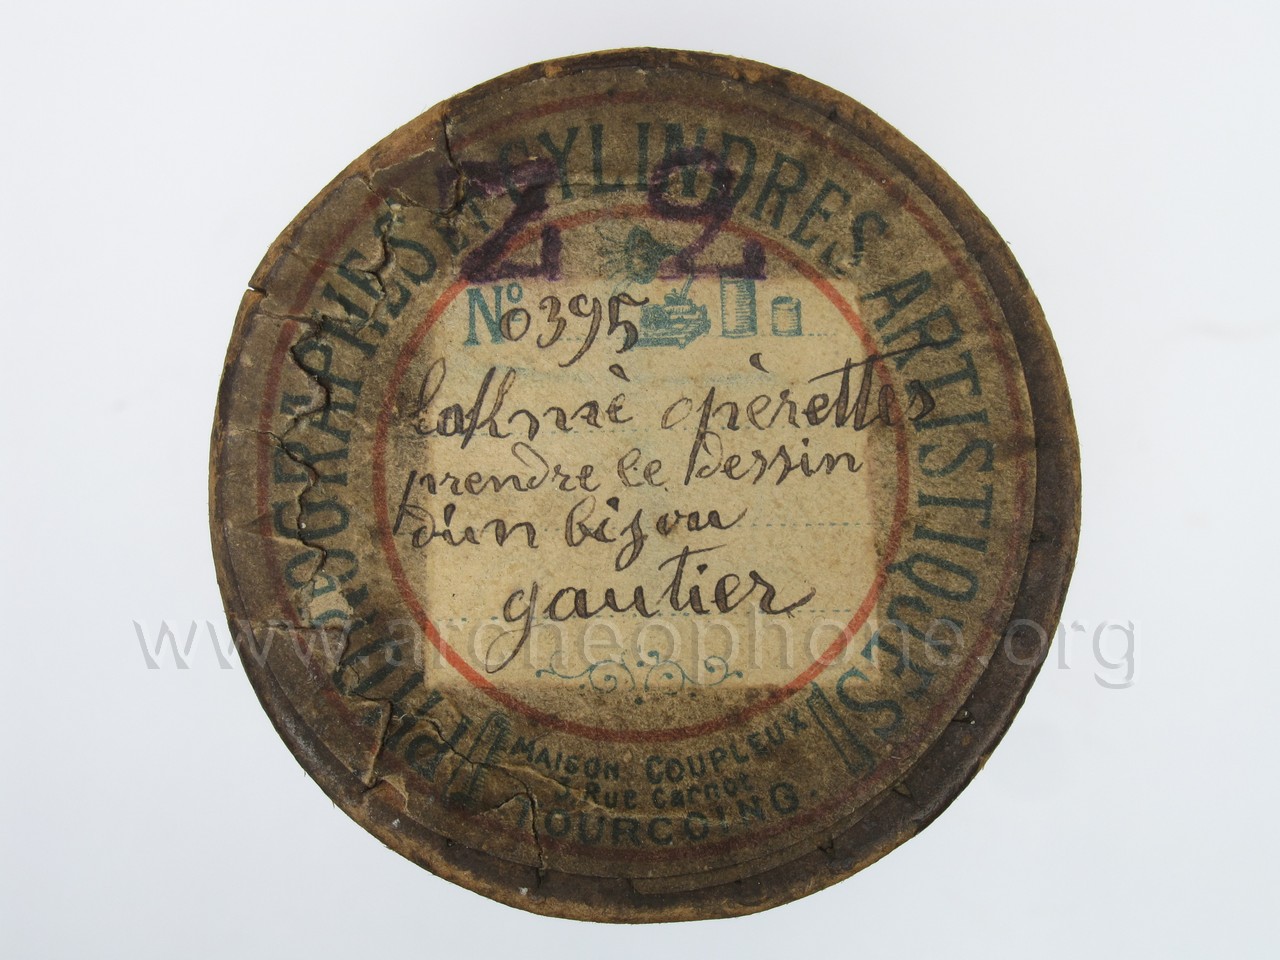 PHONOGRAPHES ET CYLINDRES ARTISTIQUES
22
Nº 0395
lakmè opèrettes
prendre le dessin
d'un bijou
gautier
MAISON COUPLEUX
Rue Carnot
TOURCOING.
www.archeophone.org